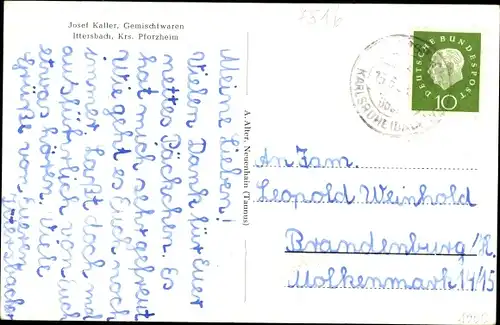 Josef Kaller, Gemischtwaren
Ittersbach, Krs. Pforzheim
Meine Lieben!
Vielen Dank für Euer
nettes Päckchen. Es
hat mich sehr gefreut
Wie geht es Euch noch
immer. Laßt doch mal
ausführlich von Euch
etwas hören. Viele
Grüße von Euern
Ittersbacher
A. Alter, Neuenhain (Taunus)
DEUTSCHE BUNDESPOST
10
KARLSRUHE
An Fam.
Leopold Weinhold
Brandenburg/H.
Molkenmark 14/15